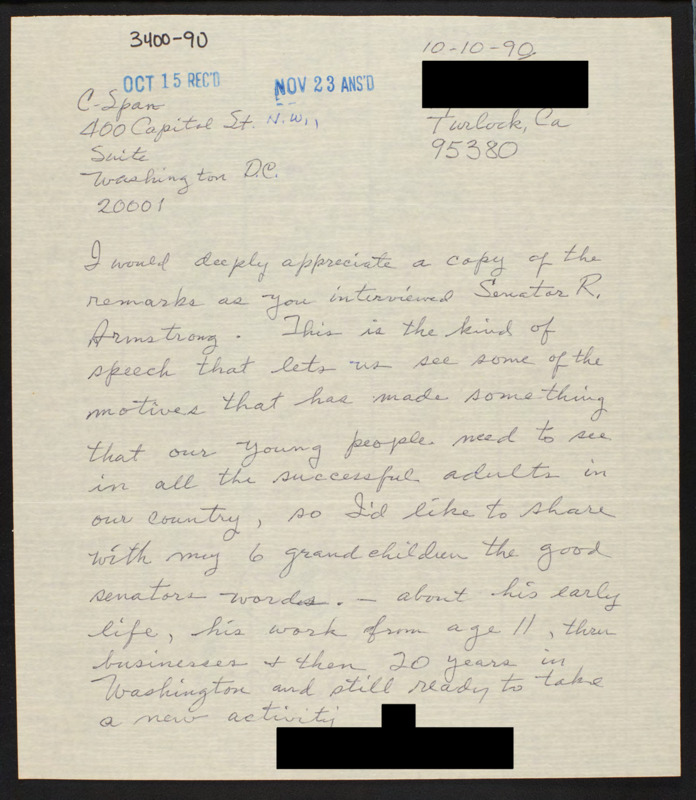 3400-90
10-10-90
OCT 15 REC'D
NOV 23 ANS'D
C-Span
400 Capitol St. N.W.,
Suite
Washington D.C.
20001
Turlock, Ca
95380
I would deeply appreciate a copy of the
remarks as you interviewed Senator R.
Armstrong. This is the kind of
speech that lets us see some of the
motives that has made something
that our young people need to see
in all the successful adults in
our country, so I'd like to share
with my 6 grandchildren the good
senators words. — about his early
life, his work from age 11, thru
businesses & then 20 years in
Washington and still ready to take
a new activity